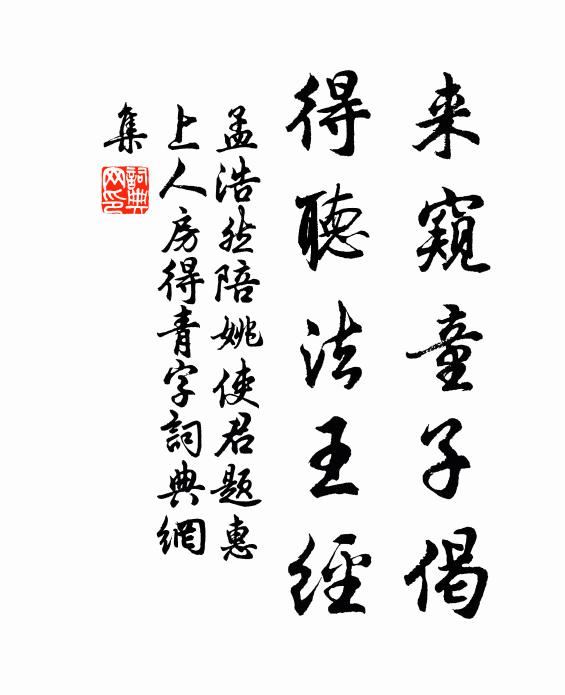 来窥童子偈
得聽法王經
孟浩然陪姚使君題惠
上人房得青字詞典網
集
詞典网印